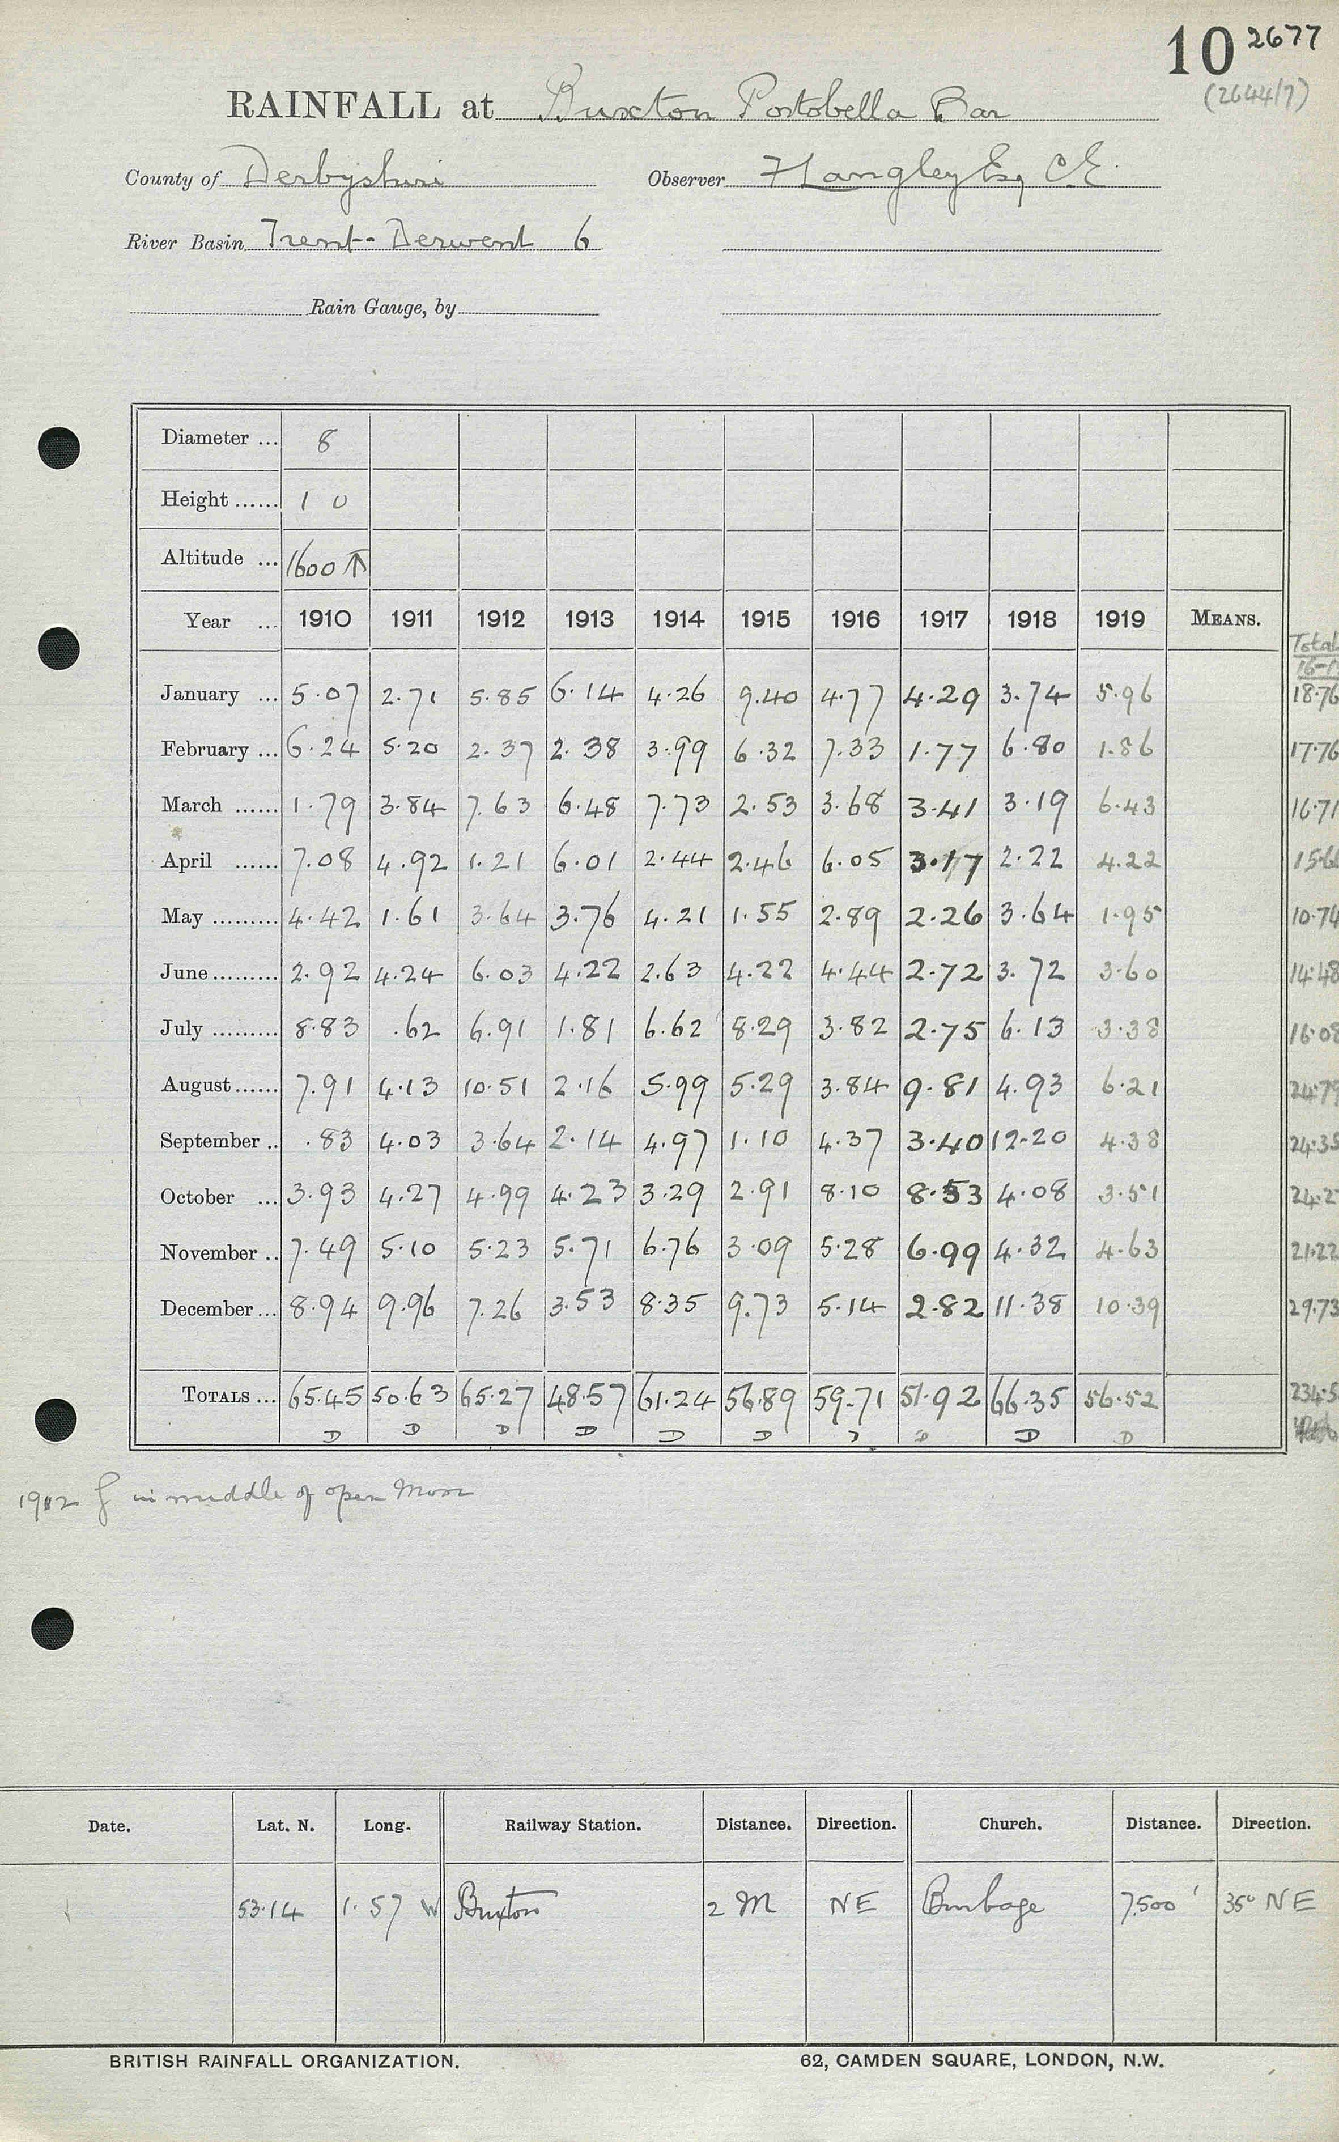 10 2677
(2644/7)
RAINFALL at Buxton Portobella Bar
County of Derbyshire Observer F Langley Esq C.E.
River Basin Trent-Derwent 6
Rain Gauge, by
Diameter ... 8
Height ...... 1 0
Altitude ... 1600 ↑
Year ... 1910 1911 1912 1913 1914 1915 1916 1917 1918 1919 MEANS. Total
January ... 5.07 2.71 5.85 6.14 4.26 9.40 4.77 4.29 3.74 5.96 18.76
February ... 6.24 5.20 2.37 2.38 3.99 6.32 7.33 1.77 6.80 1.86 17.76
March ...... 1.79 3.84 7.63 6.48 7.73 2.53 3.68 3.41 3.19 6.43 16.71
April ...... 7.08 4.92 1.21 6.01 2.44 2.46 6.05 3.17 2.22 4.22
May ......... 4.42 1.61 3.64 3.76 4.21 1.55 2.89 2.26 3.64 1.95 10.74
June ......... 2.92 4.24 6.03 4.22 2.63 4.22 4.44 2.72 3.72 3.60 14.48
July ......... 8.83 .62 6.91 1.81 6.62 8.29 3.82 2.75 6.13 3.38 16.08
August...... 7.91 4.13 10.51 2.16 5.99 5.29 3.84 9.81 4.93 6.21 24.79
September .. .83 4.03 3.64 2.14 4.97 1.10 4.37 3.40 12.20 4.38 24.35
October ... 3.93 4.27 4.99 4.23 3.29 2.91 8.10 8.53 4.08 3.51 24.2
November .. 7.49 5.10 5.23 5.71 6.76 3.09 5.28 6.99 4.32 4.63 21.22
December ... 8.94 9.96 7.26 3.53 8.35 9.73 5.14 2.82 11.38 10.39 29.73
TOTALS ... 65.45 50.63 65.27 48.57 61.24 56.89 59.71 51.92 66.35 56.52 234.5
D D D D D D D D D D
1912 in middle of open Moor
Date. Lat. N. Long. Railway Station. Distance. Direction. Church. Distance. Direction.
53.14 1.57 W Buxton 2 M NE Burbage 7.500' 35° NE
BRITISH RAINFALL ORGANIZATION. 62, CAMDEN SQUARE, LONDON, N.W.